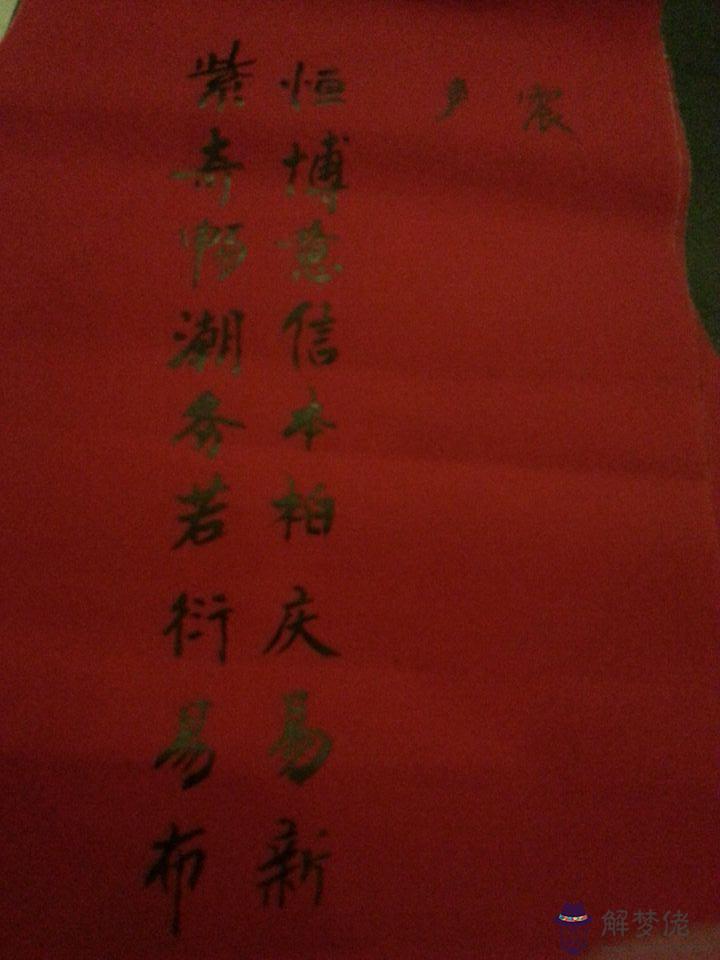 震
恒博慧信本柏庆易新
紫寿畅潮秀若衍易布
解梦佬